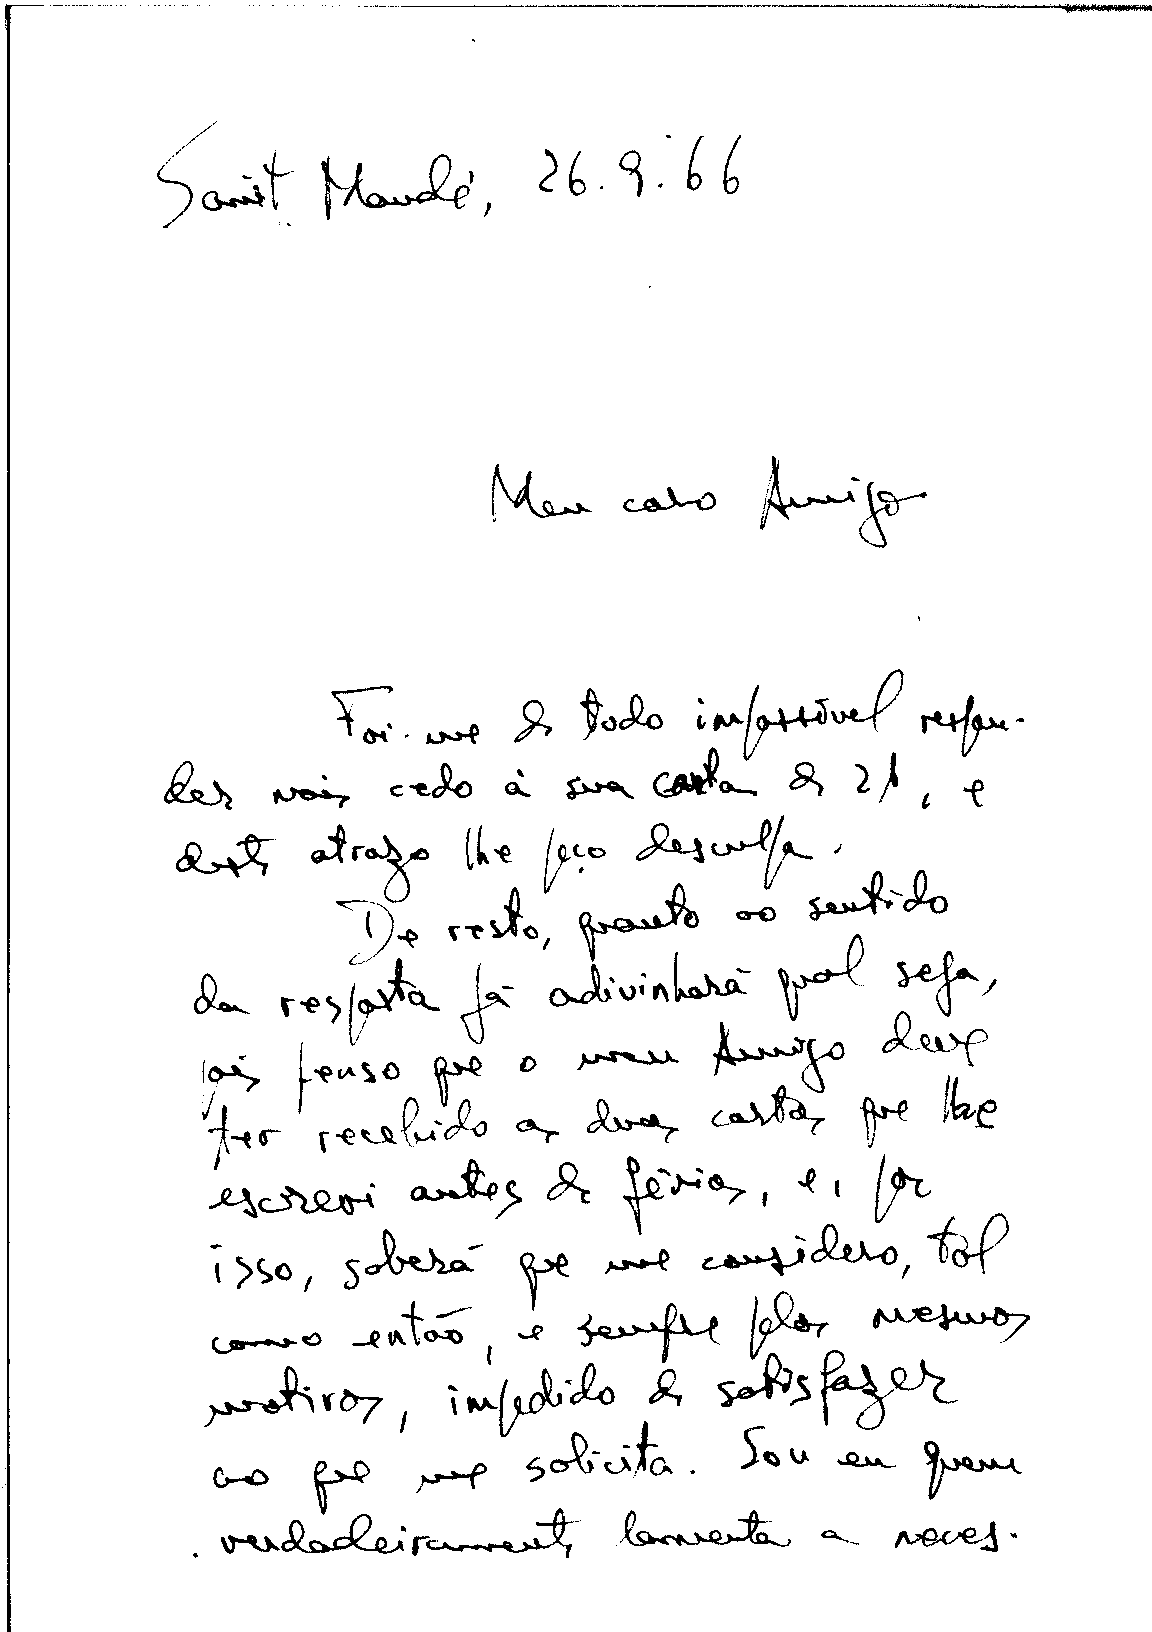 Saint Mandé, 26.9.66
Meu caro Amigo
Foi-me de todo impossível respon-
der mais cedo à sua carta de 21, e
deste atrazo lhe peço desculpa.
De resto, quanto ao sentido
da resposta já adivinhará qual seja,
pois penso que o meu Amigo deve
ter recebido as duas cartas que lhe
escrevi antes de férias, e, por
isso, saberá que me considero, tal
como então, e sempre pelos mesmos
motivos, impedido de satisfazer
ao que me solicita. Sou eu quem
verdadeiramente lamenta a neces-